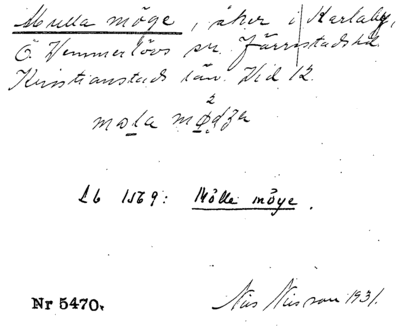 Mulla möge, åker i Karlaby,
Ö. Vemmerlövs sn. Järrestads hd
Kristianstads län. Vid 12.
mɷla mødʒa
2
Lb 1569: Mölle möye.
Nr 5470.
Nils Nilsson 1931.